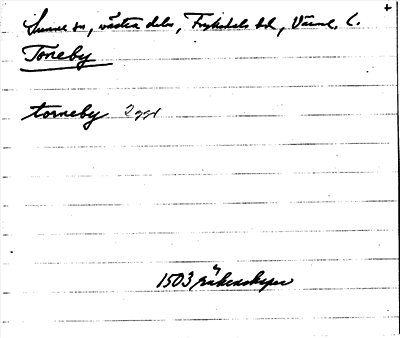 Sunne sn, västra delen, Fryksdals hd, Värml. l.
+
Toneby
torneby 2 ggr
1503, räkenskaper